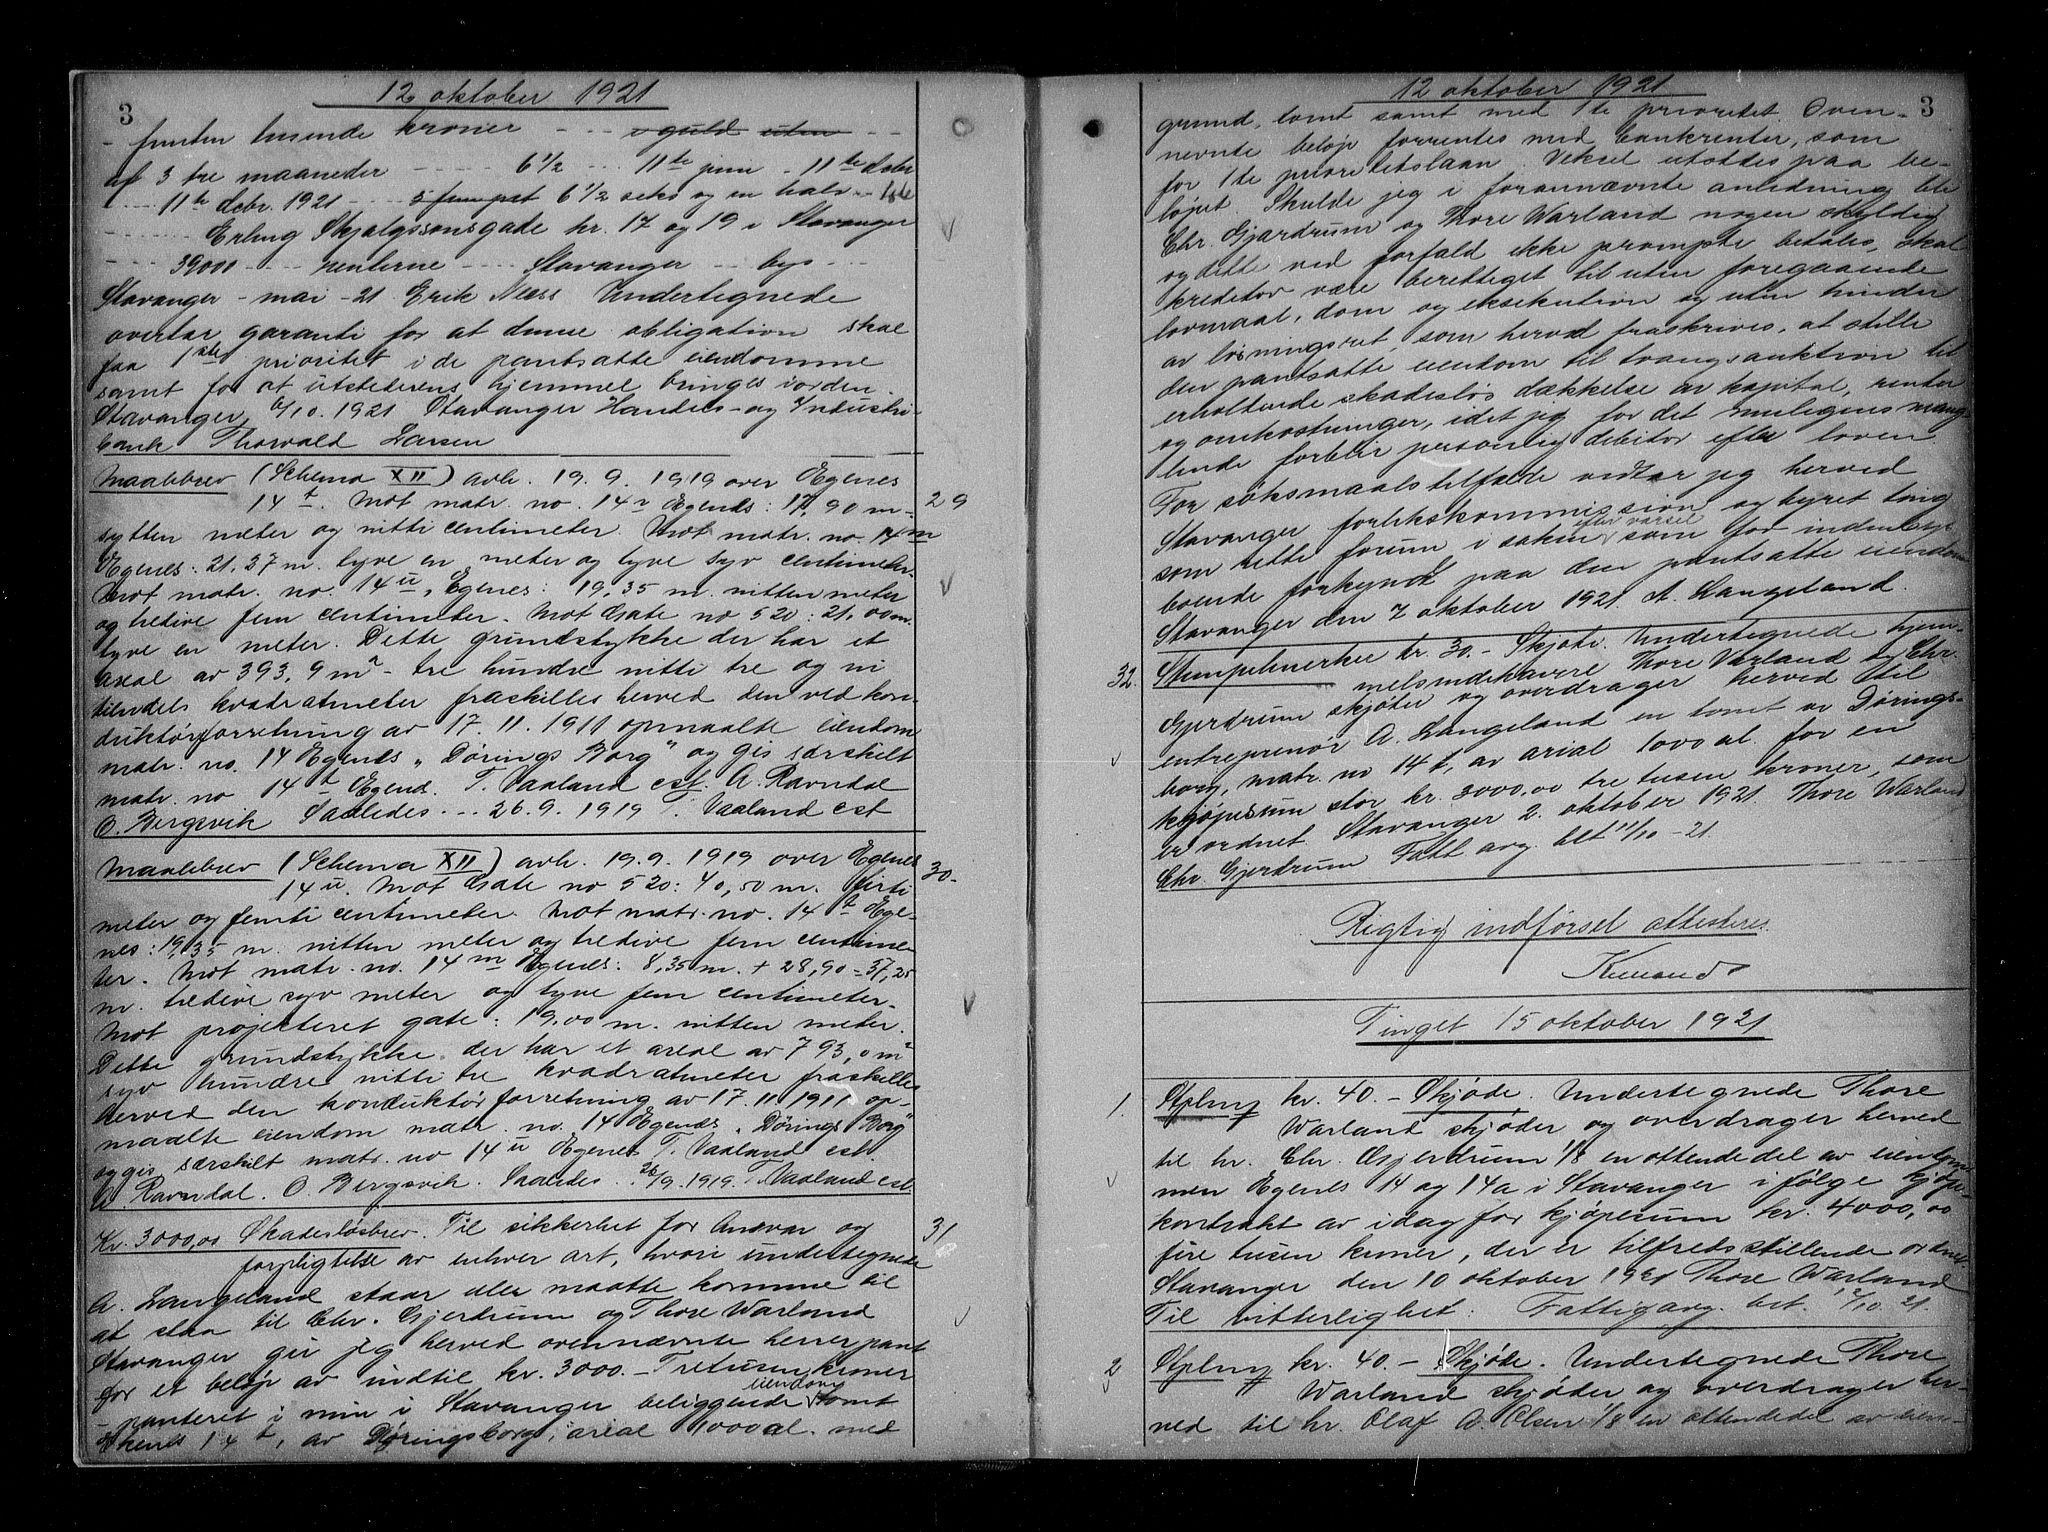 3
12 oktober 1921
- femten tusende kroner - - - i guld uten - -
af 3 tre maaneder - - - - - 6 1/2 - - - 11te juni - 11te debr
- - - 11te debr. 1921 - - - - 5 fem pct 6 1/2 seks og en halv - -
- - - - - Erling Skjalgssonsgade nr. 17 og 19 i Stavanger
- - - 39000 - - - - renterne - - - - Stavanger - - - bys - - -
Stavanger - mai - 21 Erik Næss Undertegnede
overtar garanti for at denne obligation skal
faa 1ste prioritet i de pantsatte eiendomme
samt for at utstederens hjemmel bringes i orden.
Stavanger, 6/10. 1921 Stavanger Handels- og Industri-
bank Thorvald Larsen
Maalebrev (Schema XII) avh. 19. 9. 1919 over Egenes
14 t. Mot matr. no. 14 r Egenes: 17,90 m - 29
sytten meter og nitti centimeter. Mot matr. no. 14 m
Egenes: 21.27 m. tyve en meter og tyve syv centimeter.
Mot matr. no. 14 u, Egenes: 19,35 m. nitten meter
og tredive fem centimeter. Mot Gate no 520: 21,00 m.
tyve en meter. Dette grundstykke der har et
areal av 393,9 m² - tre hundre nitti tre og ni
tiendels kvadratmeter fraskilles herved den ved kon-
duktørforretning av 17. 11. 1911 opmaalte eiendom
matr. no. 14 Egenes "Dørings Borg" og gis særskilt
matr. no 14 t Egenes. T. Vaaland cst. A. Ravndal
O. Bergsvik Saaledes - - - 26. 9. 1919 T. Vaaland cst
Maalebrev (Schema XII) avh. 19. 9. 1919 over Egenes 30.
14 u. Mot Gate no 520: 40,50 m. firti
meter og femti centimeter. Mot matr. no. 14 t Ege-
nes: 19,35 m. nitten meter og tredive fem centime-
ter. Mot matr. no. 14 m Egenes: 8,35 m. + 28,90 = 37,25
m. tredive syv meter og tyve fem centimeter.
Mot projekteret gate: 19,00 m. nitten meter.
Dette grundstykke der har et areal av 793,0 m²
syv hundre nitti tre kvadratmeter fraskilles
herved den konduktørforretning av 17. 11 1911 op-
maalte eiendom matr. no. 14 Egenes "Dørings Borg"
og gis særskilt matr. no 14 u Egenes T. Vaaland cst.
A. Ravndal. O. Bergsvik. Saaledes - 26/9. 1919. T. Vaaland cst.
Kr. 3000,00 Skadesløsbrev. Til sikkerhet for Ansvar og 31
forpligtelse av enhver art, hvori undertegnede
A. Langeland staar eller maatte komme til
at staa til Chr. Gjerdrum og Thore Warland
Stavanger gir jeg herved ovennævnte herrer pant
for et beløp av indtil kr. 3000. - Tretusen kroner
eiendom
- panteret i min i Stavanger beliggende tomt
Egenes 14 t, av Døringsborg, areal 1000 al. med
12 oktober 1921
3
grund, tomt samt med 1te prioritet. Oven-
nevnte beløp forrentes med bankrenter, som
for 1te prioritetslaan. Veksel utstedes paa be-
løpet. Skulde jeg i forannævnte anledning bli
Chr. Gjerdrum og Thore Warland nogen skyldig
og dette ved forfald ikke prompte betales, skal
kreditor være berettiget til uten foregaaende
lovmaal, dom og eksekution og uten hinder
av løsningsret, som herved fraskrives, at stille
den pantsatte eiendom til tvangsauktion til
erholdende skadesløs dækkelse av kapital, renter
og omkostninger, idet jeg for det muligens mang-
lende forblir personlig debitor efter loven
For søksmaalstilfælde vedtar jeg herved
Stavanger forlikskommission og byret ting
efter varsel
som rette forum i saken som for indenbys
boende forkyndt paa den pantsatte eiendom
Stavanger den 7 oktober 1921. A. Langeland.
32. Stempelmerker kr. 30. - Skjøte. Undertegnede hjem-
melsindehavere Thore Varland og Chr.
Gjerdrum skjøter og overdrager herved til
entreprenør A. Langeland en tomt av Dørings-
borg, matr. no 14 t, av areal 1000 al. for en
kjøpesum stor kr. 3000,00 tre tusen kroner, som
er ordnet. Stavanger 2. oktober 1921. Thore Warland
Chr. Gjerdrum Fatt. avg. bet 11/10 - 21.
Rigtig indførsel attesteres.
Tinget 15 oktober 1921
1. Stpling kr. 40. - Skjøde. Undertegnede Thore
Warland skjøder og overdrager herved
til hr. Chr. Gjerdrum 1/8 en ottende del av eiendom-
men Egenes 14 og 14a i Stavanger i følge kjøpe-
kontrakt av idag for kjøpesum kr. 4000,00
fire tusen kroner, der er tilfredsstillende ordnet
Stavanger den 10 oktober 1921 Thore Warland
Til vitterlighet: Fattigavg. bet. 12/10. 21.
2 Stpling kr. 40. - Skjøde. Undertegnede Thore
Warland skjøder og overdrager her-
ved til hr. Olaf A. Olsen 1/8 en ottendedel av eien-